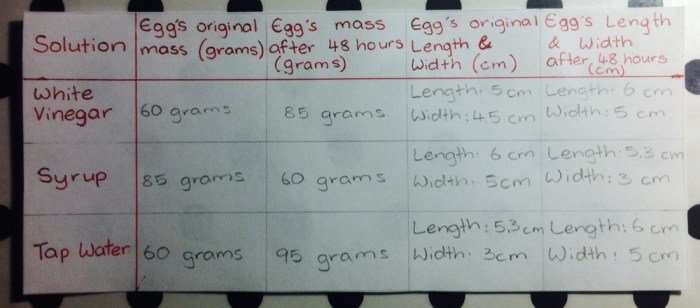 Solution
Egg's original
mass (grams)
Egg's mass
after 48 hours
(grams)
Egg's original
Length &
Width (cm)
Egg's Length
& Width
after 48 hours
(cm)
White
Vinegar
60 grams
85 grams
Length: 5 cm
Width: 4.5 cm
Length: 6 cm
Width: 5 cm
Syrup
85 grams
60 grams
Length: 6 cm
Width: 5cm
Length: 5.3 cm
Width: 3 cm
Tap Water
60 grams
95 grams
Length: 5.3cm
Width: 3cm
Length: 6 cm
Width: 5 cm